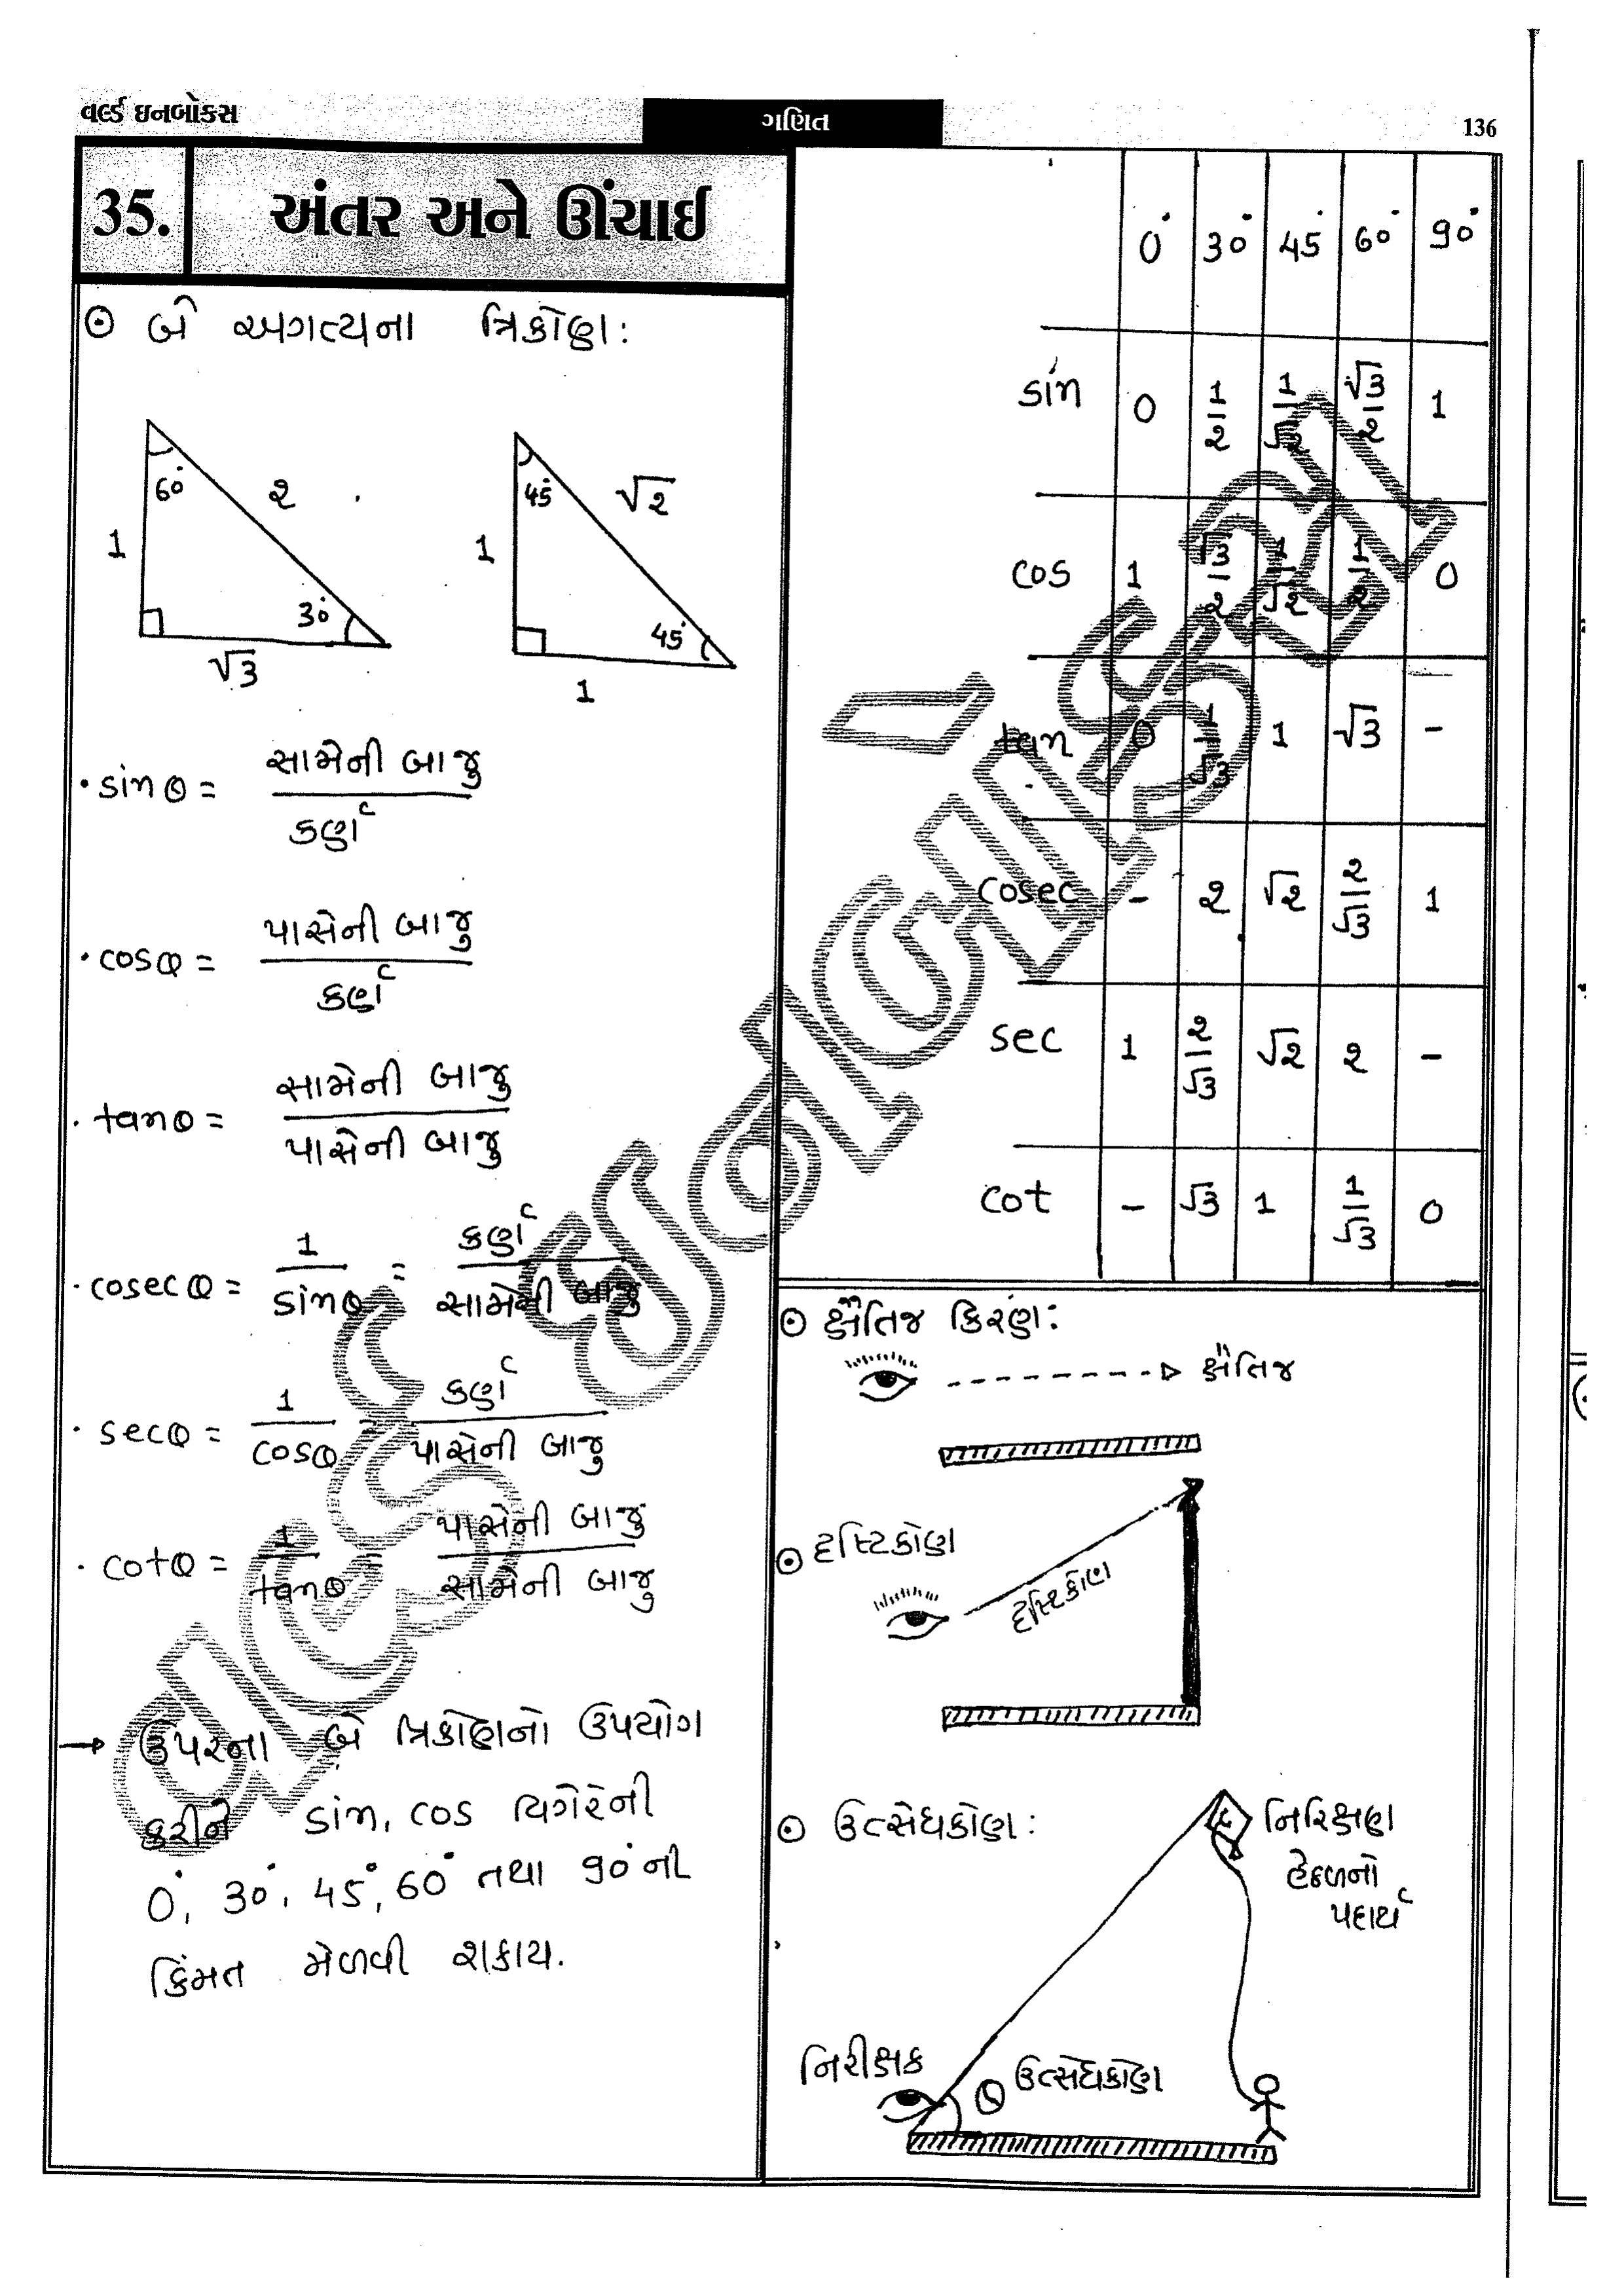 વર્લ્ડ ઇનબોક્સ
ગણિત
136
35.
અંતર અને ઊંચાઈ
⊙ બે અગત્યના ત્રિકોણ:
60° ૨ 1 30° √3
45° √૨ 1 45° 1
· sinθ = સામેની બાજુ / કર્ણ
· cosθ = પાસેની બાજુ / કર્ણ
· tanθ = સામેની બાજુ / પાસેની બાજુ
· cosecθ = 1 / sinθ = કર્ણ / સામેની બાજુ
· secθ = 1 / cosθ = કર્ણ / પાસેની બાજુ
· cotθ = 1 / tanθ = પાસેની બાજુ / સામેની બાજુ
→ ઉપરના બે ત્રિકોણનો ઉપયોગ
કરીને sin, cos વિગેરેની
0°, 30°, 45°, 60° તથા 90° ની
કિંમત મેળવી શકાય.
0° 30° 45° 60° 90°
sin 0 1/૨ 1/√૨ √3/૨ 1
cos 1 √3/૨ 1/√૨ 1/૨ 0
tan 0 1/√3 1 √3 -
cosec - ૨ √૨ ૨/√3 1
sec 1 ૨/√3 √૨ ૨ -
cot - √3 1 1/√3 0
⊙ ક્ષૈતિજ કિરણ:
ક્ષૈતિજ
⊙ દૃષ્ટિકોણ
દૃષ્ટિકોણ
⊙ ઉત્સેધકોણ:
નિરિક્ષણ
હેઠળનો
પદાર્થ
નિરીક્ષક
θ ઉત્સેધકોણ
વર્લ્ડ ઇનબોક્સ